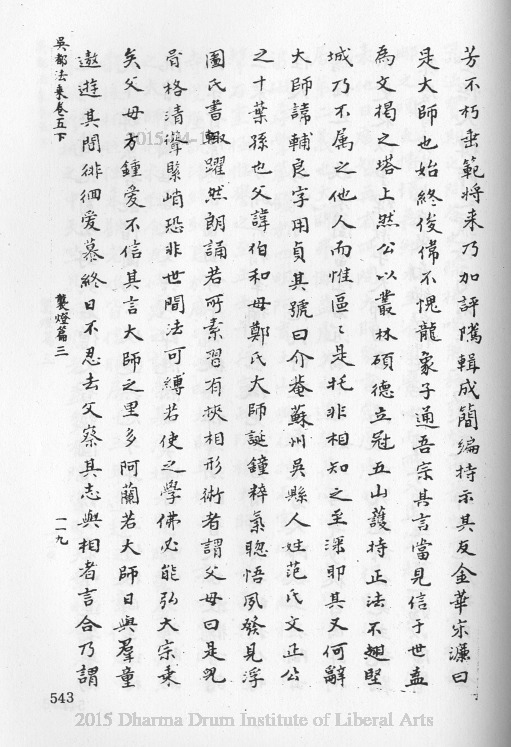 芳不朽垂範將来乃加評隲輯成簡编持示其友金華宋濂曰
是大師也始終俊偉不愧龍象子通吾宗其言當見信于世盍
為文揭之塔上然公以叢林碩德立冠五山護持正法不翅堅
城乃不属之他人而惟區〻是托非相知之至深耶其又何辭
大師諱輔良字用貞其號曰介菴蘇州吳縣人姓范氏文正公
之十葉孫也父諱伯和母鄭氏大師誕鐘粹氣聰悟夙發見浮
圖氏書輙躍然朗誦若所素習有挾相形術者謂父母曰是兒
骨格清聳緊峭恐非世間法可縛若使之學佛必能弘大宗乗
矣父母方鍾愛不信其言大師之里多阿蘭若大師日與羣童
遨遊其間徘徊爱慕終日不忍去父察其志與相者言合乃謂
吳都法乗卷五下
襲燈篇三
一一九
543
2015-04-1
2015 Dharma Drum Institute of Liberal Arts